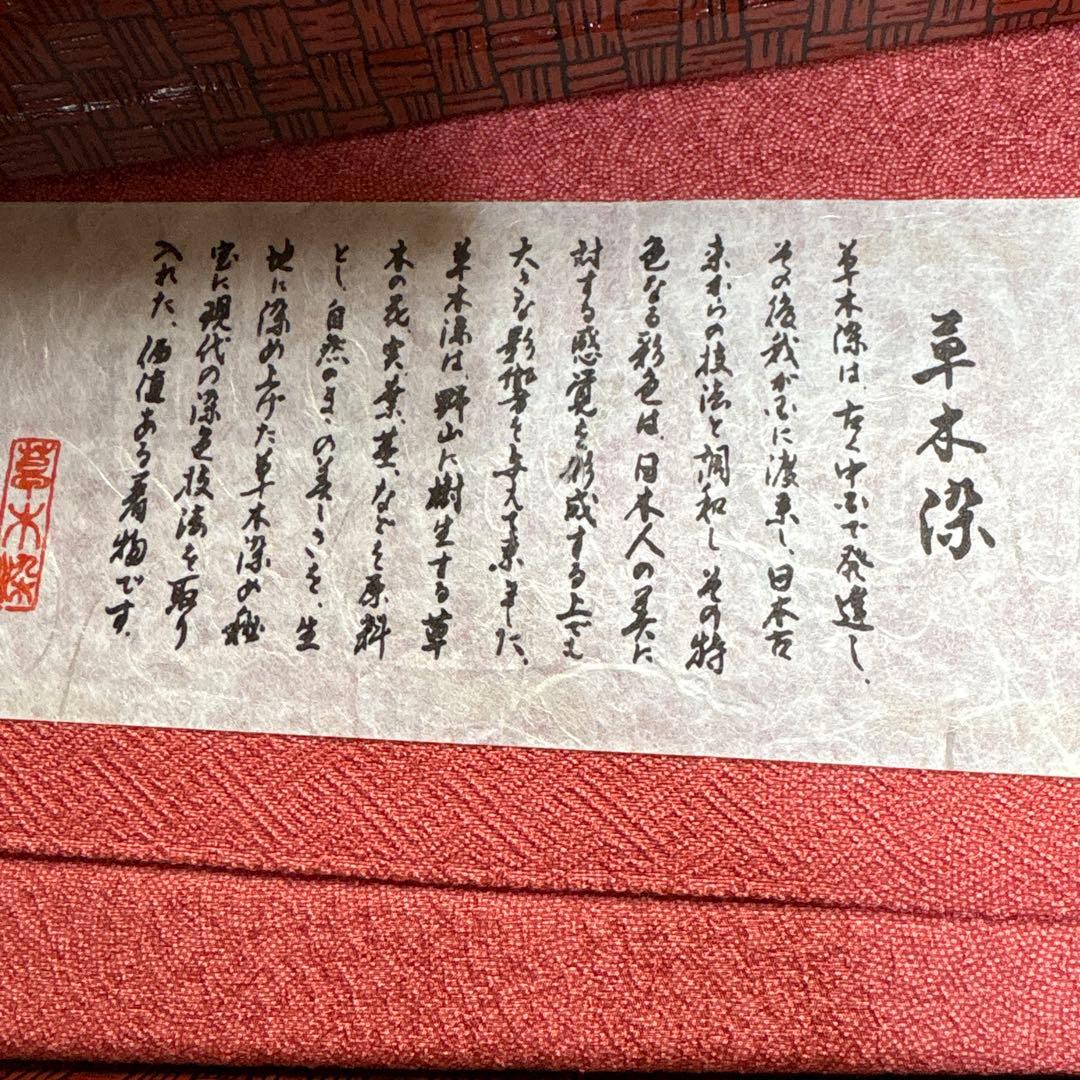 草木染
草木染は、古く中国で発達し、
その後我が国に渡来し、日本古
来からの技法と調和し、その特
色なる彩色は、日本人の美に
対する感覚を形成する上でも
大きな影響を与えて来ました。
草木染は、野山に樹生する草
木の花、実、葉、茎、などを原料
とし、自然のまゝの美しさを、生
地に染め上げた草木染の秘
宝に現代の染色技法を取り
入れた、価値ある着物です。
草木染